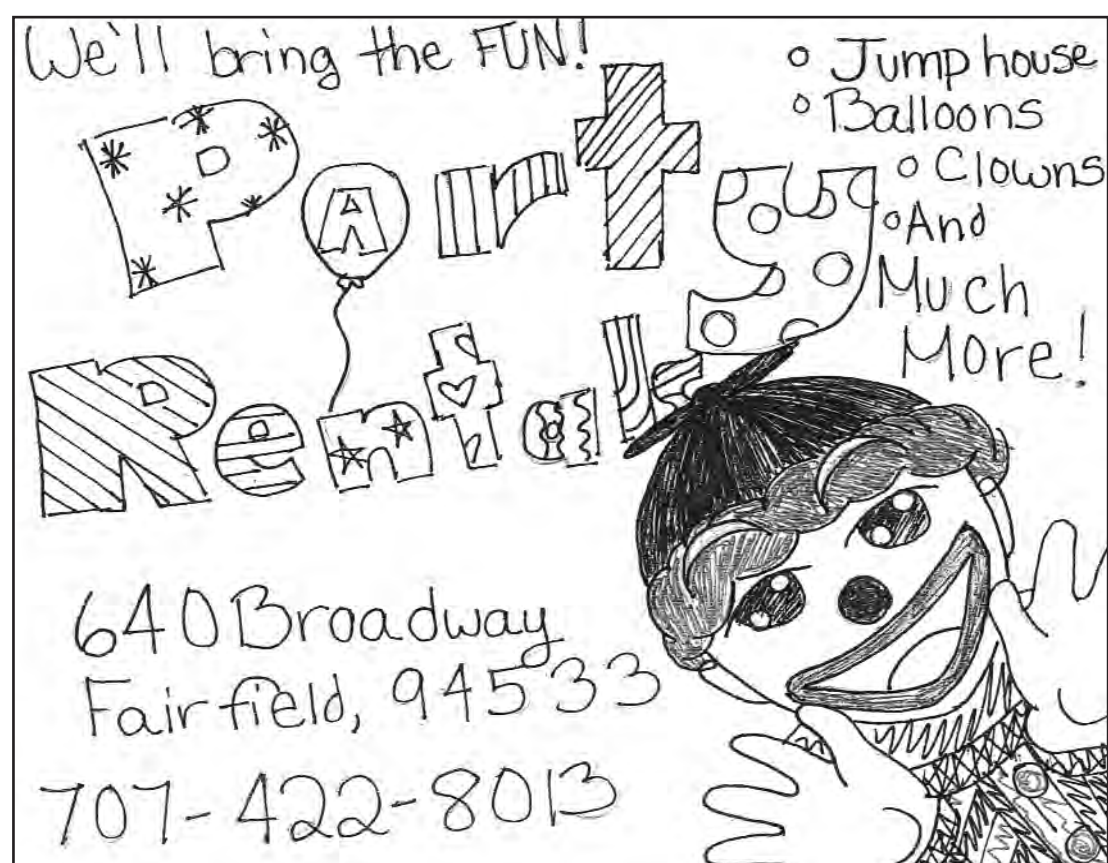 We'll bring the FUN!
Party
Rentals
○ Jump house
○ Balloons
○ Clowns
○ And
Much
More!
640 Broadway
Fairfield, 94533
707-422-8013